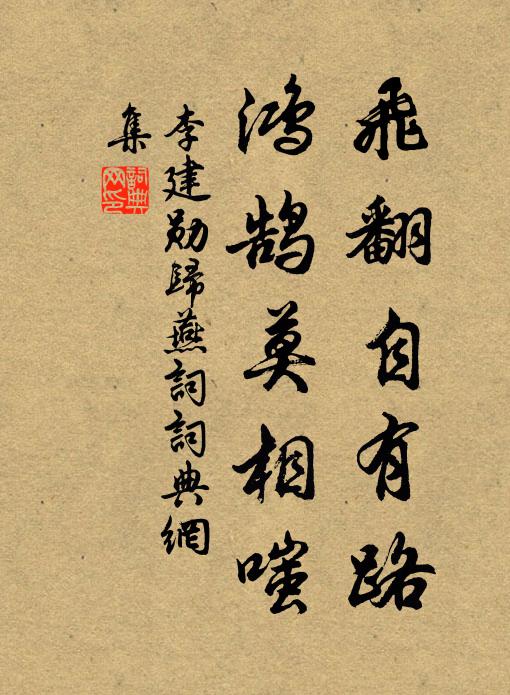 飛翻自有路
鴻鹄莫相嗤
李建勛歸燕詞詞典網
集
詞典网印